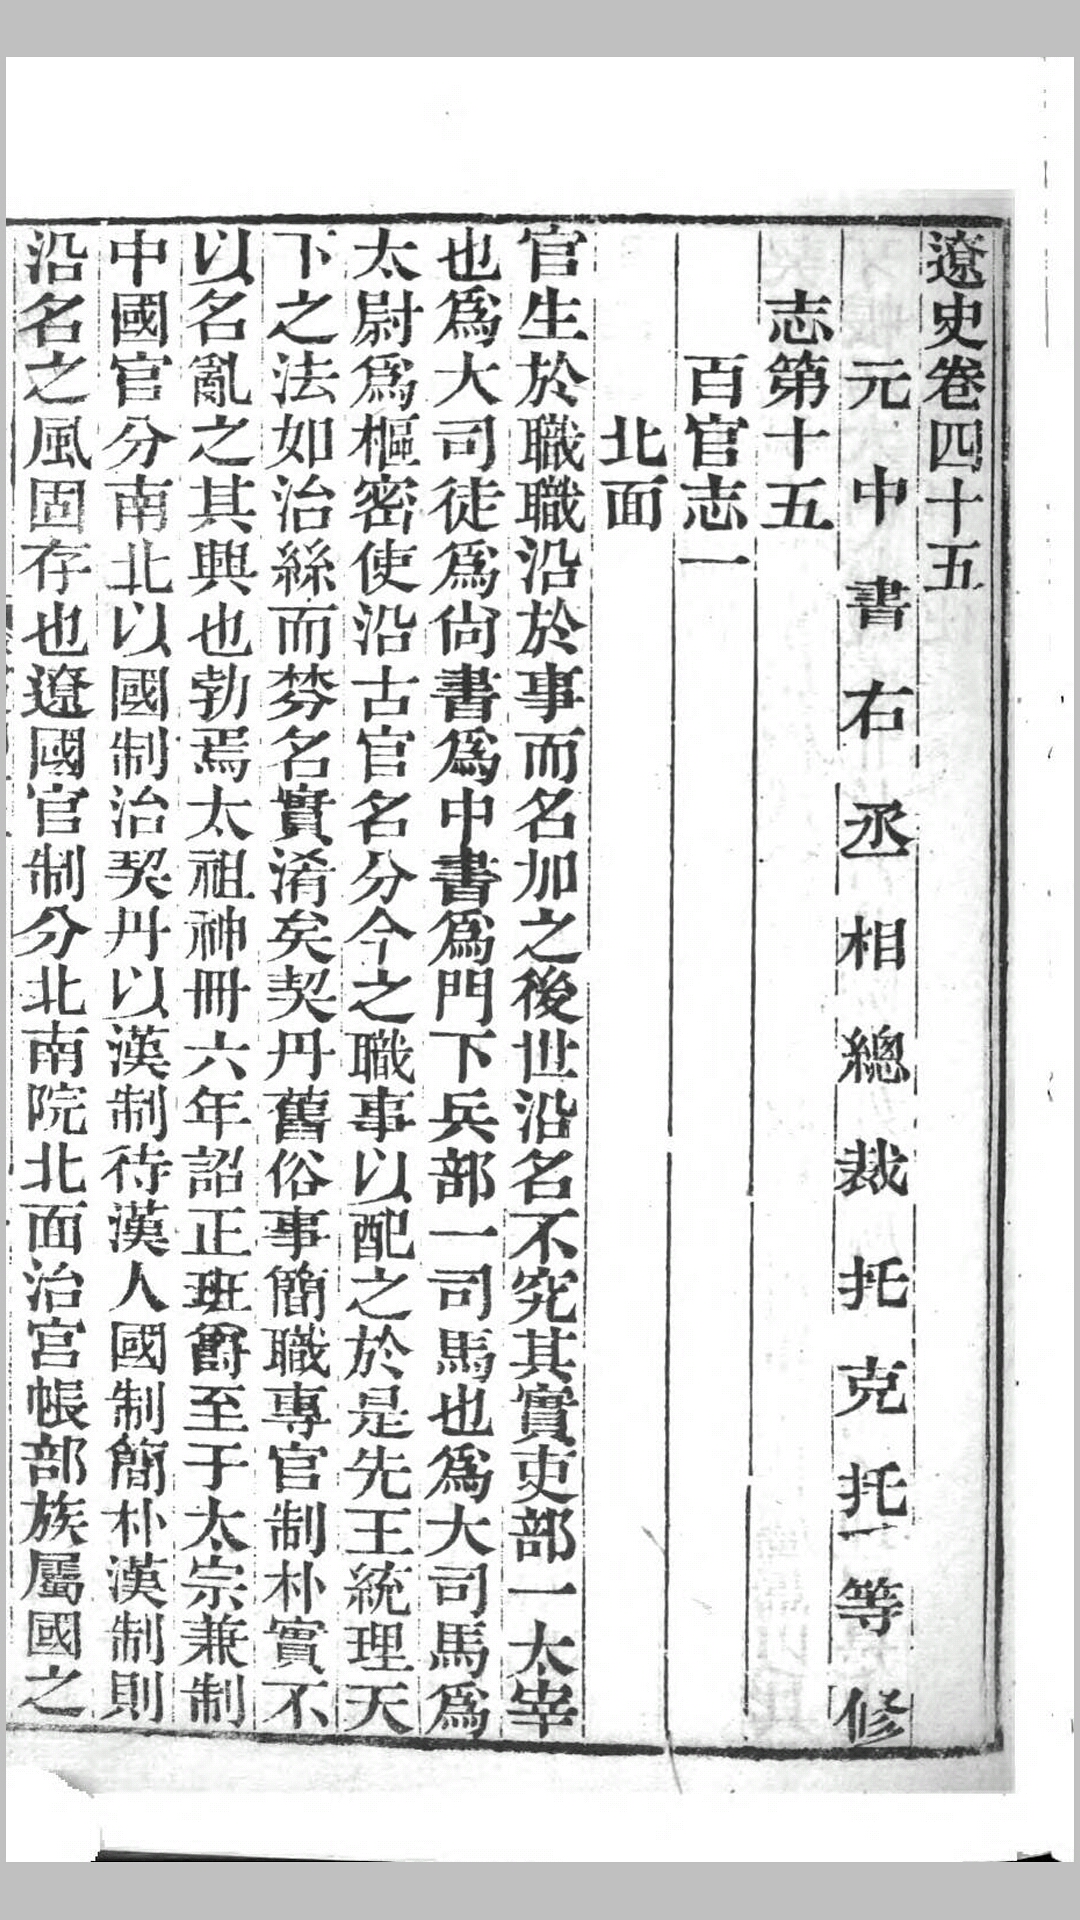 遼史卷四十五
元中書右丞相總裁托克托等修
志第十五
百官志一
北面
官生於職職沿於事而名加之後世沿名不究其實吏部一太宰
也爲大司徒爲尙書爲中書爲門下兵部一司馬也爲大司馬爲
太尉爲樞密使沿古官名分今之職事以配之於是先王統理天
下之法如治絲而棼名實淆矣契丹舊俗事簡職專官制朴實不
以名亂之其興也勃焉太祖神冊六年詔正班爵至于太宗兼制
中國官分南北以國制治契丹以漢制待漢人國制簡朴漢制則
沿名之風固存也遼國官制分北南院北面治宮帳部族屬國之